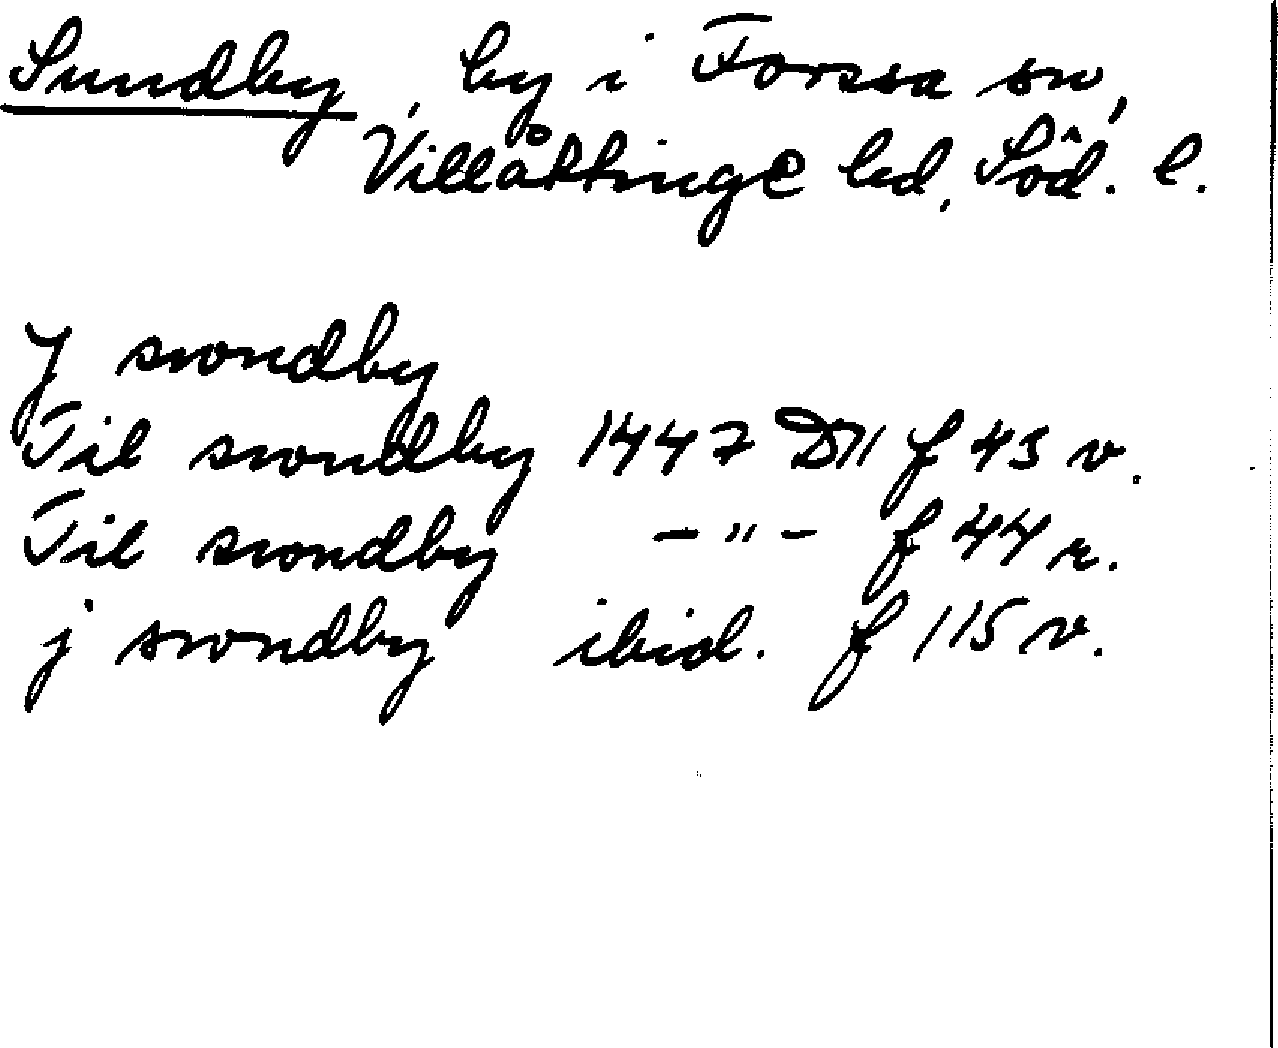 Sundby, by i Forssa sn,
Villåttinge hd, Söd. l.
J swndby
Til swndby 1447 D11 f 43 v.
Til swndby -"- f 44 r.
j swndby ibid. f 115 v.